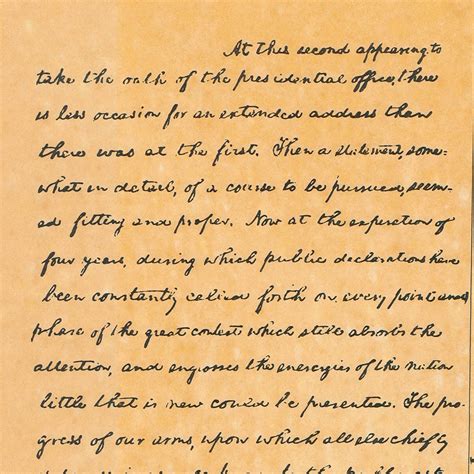 At this second appearing to
take the oath of the presidential office, there
is less occasion for an extended address than
there was at the first. Then a statement, some-
what in detail, of a course to be pursued, seem-
ed fitting and proper. Now, at the expiration of
four years, during which public declarations have
been constantly called forth on every point and
phase of the great contest which still absorbs the
attention, and engrosses the energies of the nation
little that is new could be presented. The pro-
gress of our arms, upon which all else chiefly